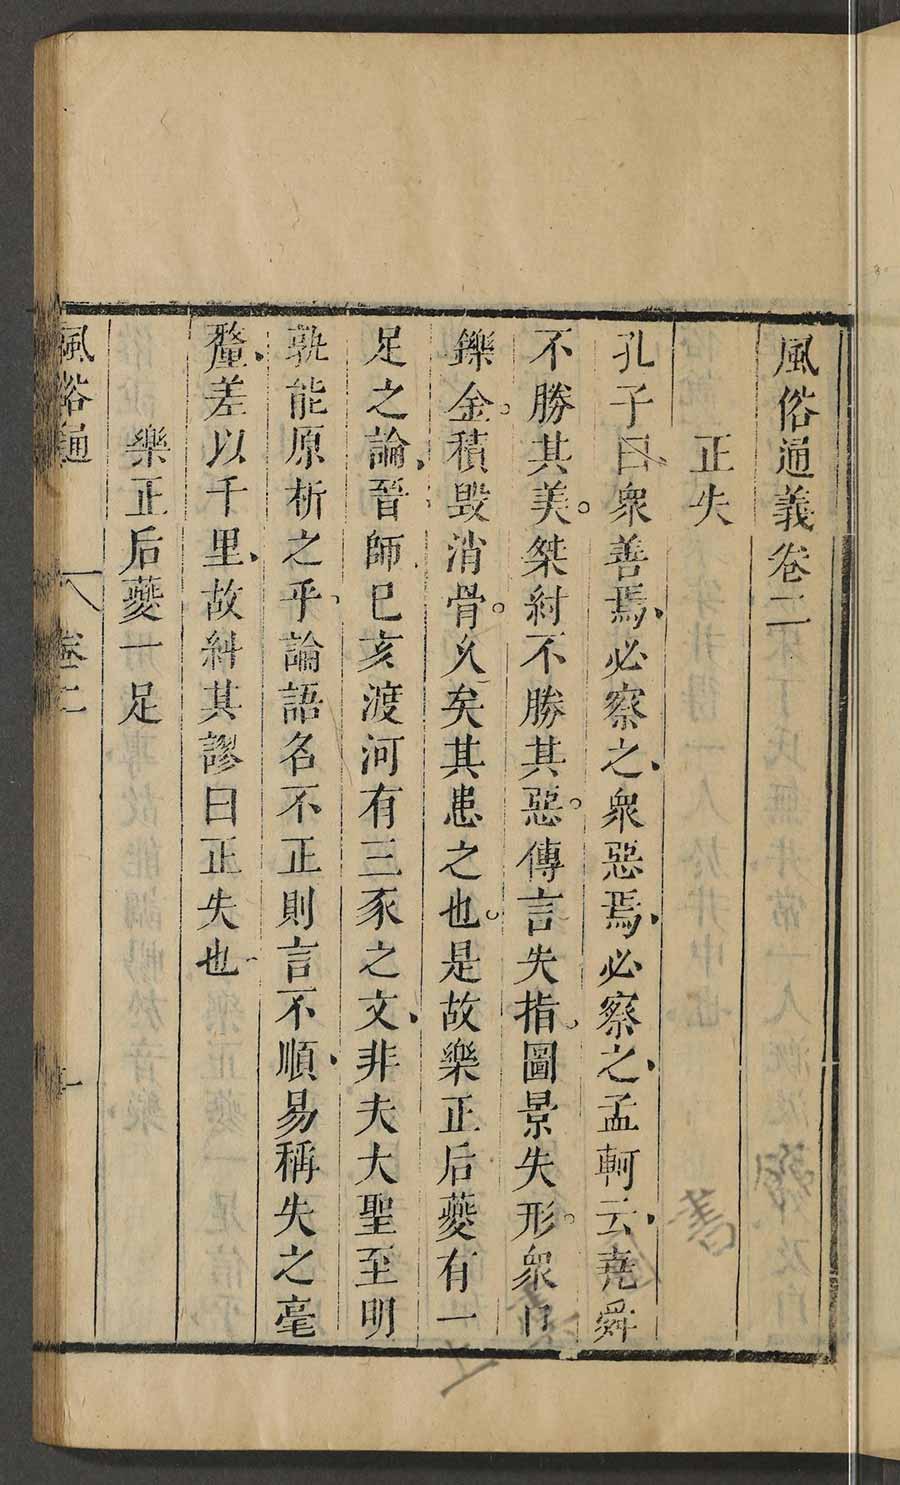 風俗通義卷二
正失
孔子曰衆善焉必察之衆惡焉必察之孟軻云堯舜
不勝其美桀紂不勝其惡傳言失指圖景失形衆口
鑠金積毀消骨久矣其患之也是故樂正后夔有一
足之論晉師己亥渡河有三豕之文非夫大聖至明
孰能原析之乎論語名不正則言不順易稱失之毫
釐差以千里故糾其謬曰正失也
樂正后夔一足
風俗通 卷二 一